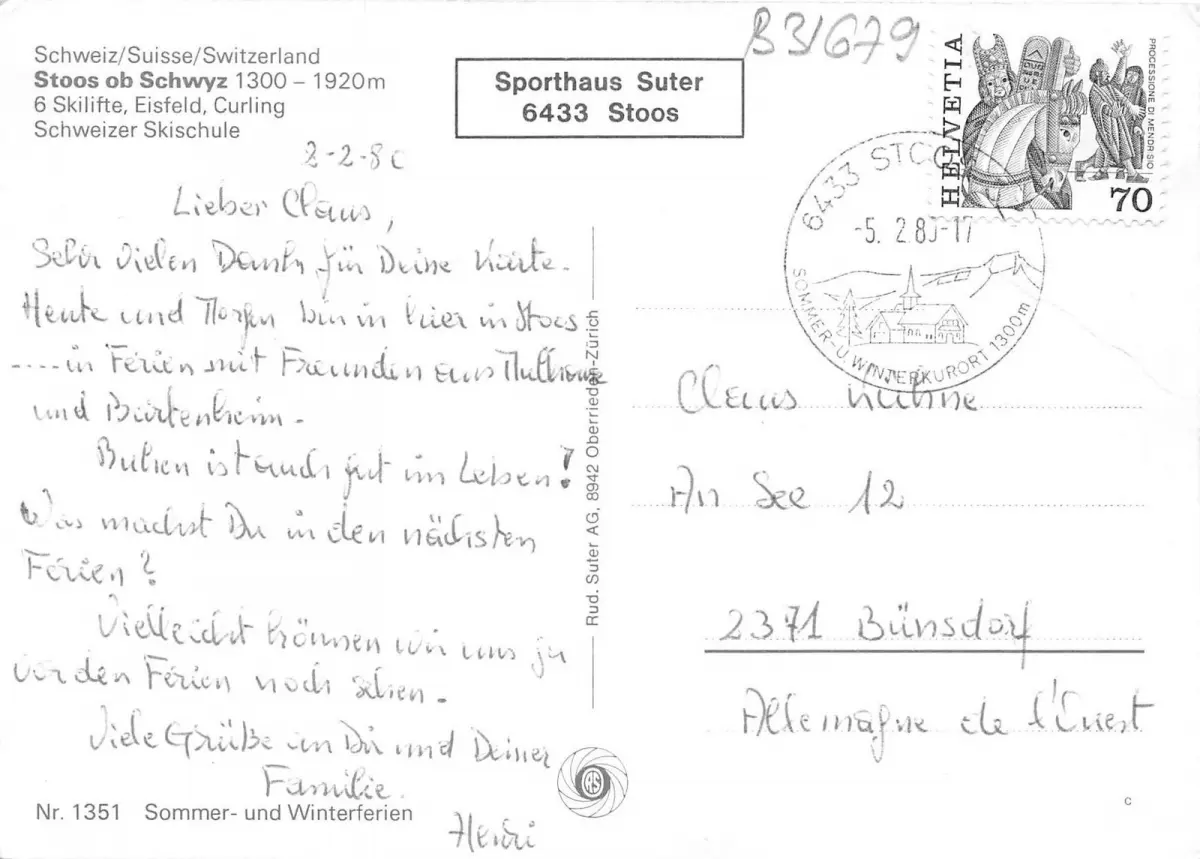 Schweiz/Suisse/Switzerland
Stoos ob Schwyz 1300 – 1920m
6 Skilifte, Eisfeld, Curling
Schweizer Skischule
Sporthaus Suter
6433 Stoos
B31679
HELVETIA
PROCESSIONE DI MENDRISIO
70
6433 STOOS
-5. 2.80-17
SOMMER- U. WINTERKURORT 1300m
2-2-80
Lieber Claus,
Sehr vielen Dank für Deine Karte.
Heute und Morgen bin in hier in Stoos
....in Ferien mit Freunden aus Mulhouse
und Bartenheim.
Ruhen ist auch gut im Leben!
Was machst Du in den nächsten
Ferien?
Vielleicht können wir uns ja
vor den Ferien noch sehen.
Viele Grüße an Du und Deiner
Familie.
Henri
Rud. Suter AG, 8942 Oberrieden-Zürich
Claus Kühne
An See 12
2371 Bünsdorf
Allemagne de l'Ouest
Nr. 1351 Sommer- und Winterferien
c